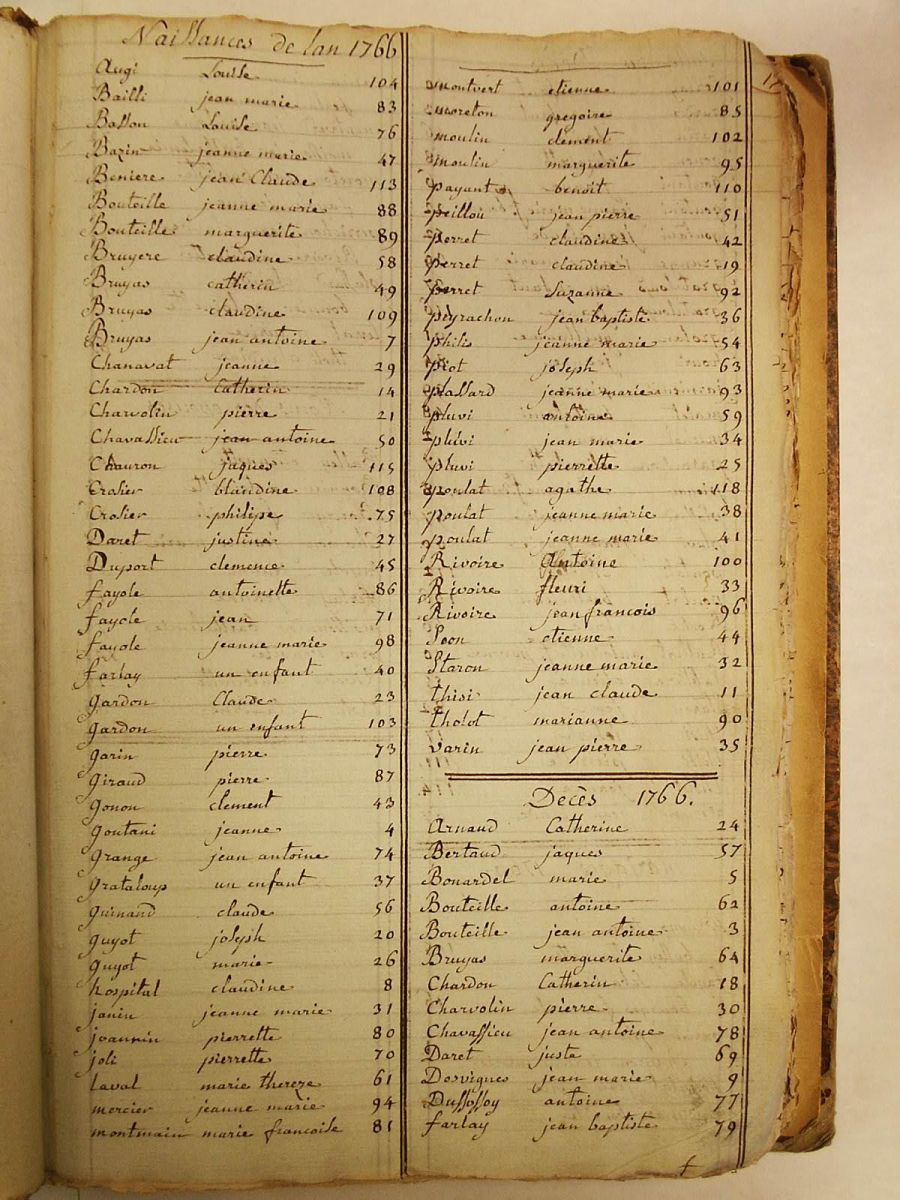 Naissances de lan 1766
Augi Louise 104
Bailli jean marie 83
Basson Louise 76
Bazin jeanne marie 47
Beniere jean Claude 113
Bouteille jeanne marie 88
Bouteille marguerite 89
Bruyere claudine 58
Bruyas catherin 49
Bruyas claudine 109
Bruyas jean antoine 7
Chanavat jeanne 29
Chardon Catherin 14
Charvolin pierre 21
Chavassieu jean antoine 50
Chauron jaques 115
Crosier blandine 108
Crosier philipe 75
Daret justine 27
Duport clemence 45
fayole antoinette 86
fayole jean 71
fayole jeanne marie 98
farlay un enfant 40
gardon Claude 23
gardon un enfant 103
garin pierre 73
giraud pierre 87
gonon clement 43
goutani jeanne 4
grange jean antoine 74
grataloup un enfant 37
guinand claude 56
guyot joseph 20
guyot marie 26
hospital claudine 8
janin jeanne marie 31
joannin pierrette 80
joli pierrette 70
Laval marie thereze 61
mercier jeanne marie 94
montmain marie francoise 81
montvert etienne 101
moreton gregoire 85
moulin clement 102
moulin marguerite 95
payant benoit 110
peillou jean pierre 51
perret claudine 42
perret claudine 19
perret Suzanne 92
peyrachon jean baptiste 36
philis jeanne marie 54
piot joseph 63
plassard jeanne marie 93
pluvi antoine 59
pluvi jean marie 34
pluvi pierrette 25
poulat agathe 118
poulat jeanne marie 38
poulat jeanne marie 41
Rivoire Antoine 100
Rivoire fleuri 33
Rivoire jean francois 96
Soon etienne 44
Staron jeanne marie 32
thisi jean claude 11
tholot marianne 90
varin jean pierre 35
Decès 1766.
Arnaud Catherine 24
Bertaud jaques 57
Bonardel marie 5
Bouteille antoine 62
Bouteille jean antoine 3
Bruyas marguerite 64
Chardon Catherin 18
Charvolin pierre 30
Chavassieu jean antoine 78
Daret juste 69
Desvignes jean marie 9
Dussossoy antoine 77
farlay jean baptiste 79